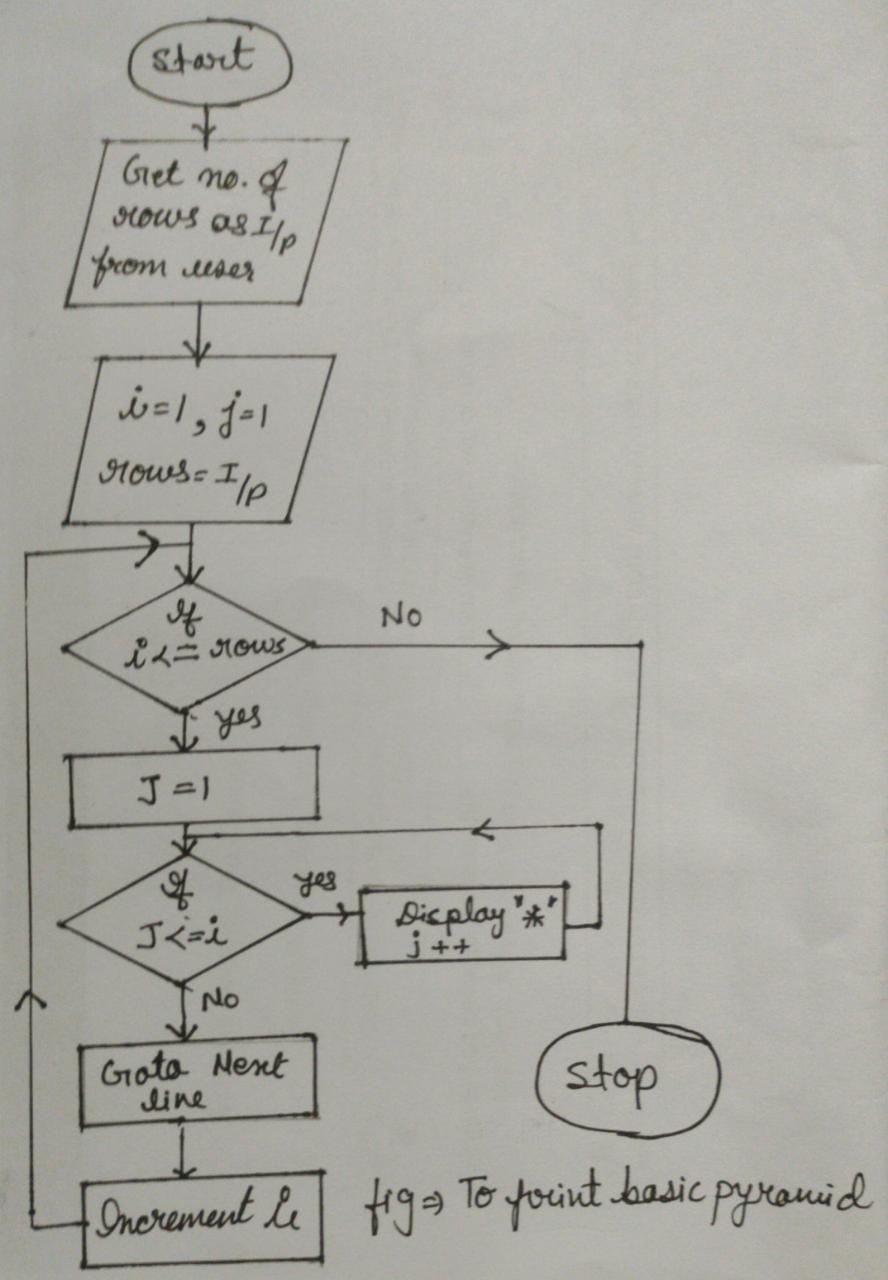 Start
Get no. of
rows as I/p
from user
i=1, j=1
rows= I/p
If
i<= rows
No
yes
J =1
If
J<=i
yes
Display "*"
j ++
No
Goto Next
line
Stop
Increment i
fig⇒ To print basic pyramid